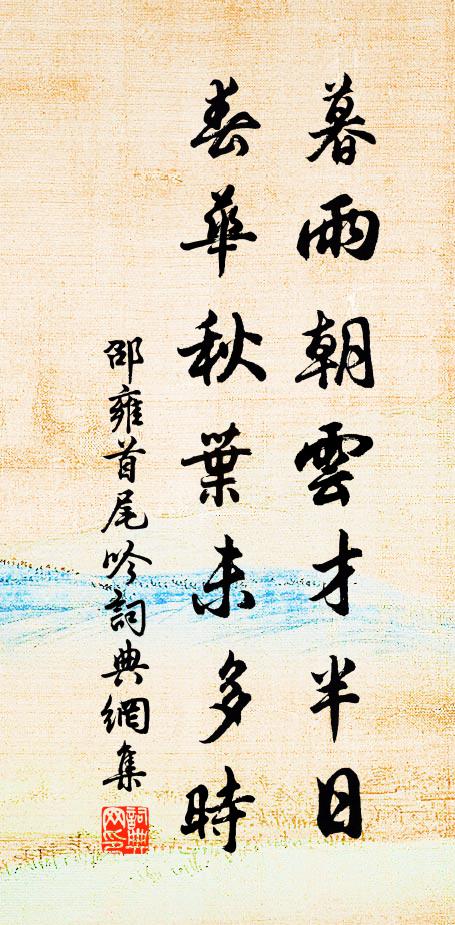 暮雨朝雲才半日
春華秋葉未多時
邵雍首尾吟詞典網集
詞典
网印